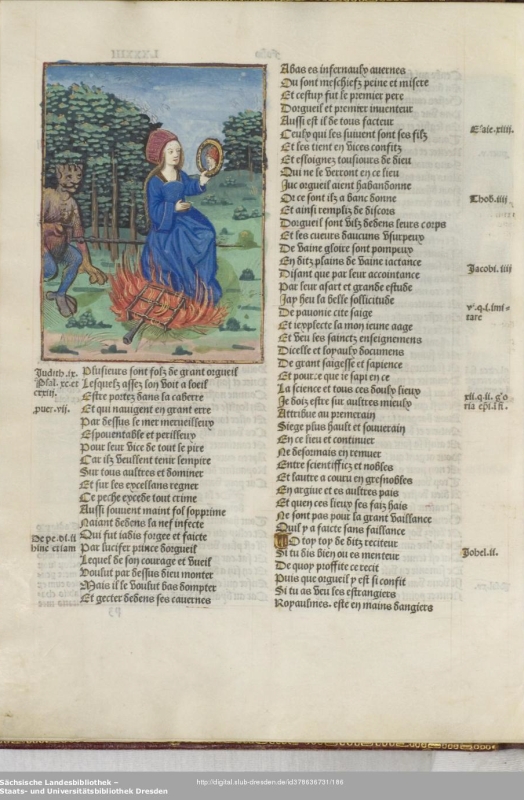 Judith .ix.
cxiii.
puer. vij.
De pe. di. ii
hinc etiam
Plusieurs sont folz de grant orgueil
Lesquelz assez lon voit a loeil
Estre portez dans la caberre
Et qui nauigent en grant erre
Par dessus le mer merueilleux
Espouentable et perilleux
Pour leur vice de tout le pire
Car ilz veullent tenir lempire
Sur tous aultres et dominer
Et sur les excellans regner
Ce peche excede tout crime
Aussi souuent maint fol sopprime
Naiant dedens la nef infecte
Qui fut iadis forgee et faicte
Par lucifer prince dorgueil
Lequel de son courage et vueil
Voulut par dessus dieu monter
Mais il le voulut bas dompter
Et gecter dedens ses cauernes
Abas es infernaulx auernes
Ou sont meschiefz peine et misere
Et cestuy fut le premier pere
Dorgueil et premier inuenteur
Aussi est il de tous facteur
Ceulx qui les suiuent sont ses filz
Et les tient en vices confitz
Et esloignez tousiours de dieu
Qui ne le verront en ce lieu
Jue orgueil aient habandonne
Ot ce sont ilz a banc donne
Et ainsi rempliz de discors
Dorgueil sont vilz dedens leurs corps
Et les cueurs daucuns vsurpeux
De vaine gloire sont pompeux
En ditz plains de vaine iactance
Disant que par leur accointance
Par leur asart et grande estude
Jay heu la belle sollicitude
De pauonie cite saige
Et icy plecte la mon ieune aage
Et veu les sainctz enseignemens
Dicelle et loyaulx documens
De grant saigesse et sapience
Et pource que ie sapi en ce
La science et tous ces doulx lieux
Je doiz estre sur aultres mieulx
Attribue au premerain
Siege plus hault et souuerain
En ce lieu et continuer
Ne desormais en remuer
Entre scientifficz et nobles
Et lautre a couru en gresnobles
En argiue et es aultres pais
Et quen ces lieux ses faiz hais
Ne sont pas pour la grant vaillance
Quil y a faicte sans faillance
O toy toy de ditz reciteur
Si tu dis bien ou es menteur
De quoy proffite ce recit
Puis que orgueil y est si confit
Si tu as veu les estrangiers
Royaulmes. este en mains dangiers
Esaie. xiiij.
Thob. iiij
Jacobi. iiij
v. q. i. imi-
tare
xii. q. ii. glo
ria epi.
Johel. ii.
Sächsische Landesbibliothek –
Staats- und Universitätsbibliothek Dresden
http://digital.slub-dresden.de/id378636731/186